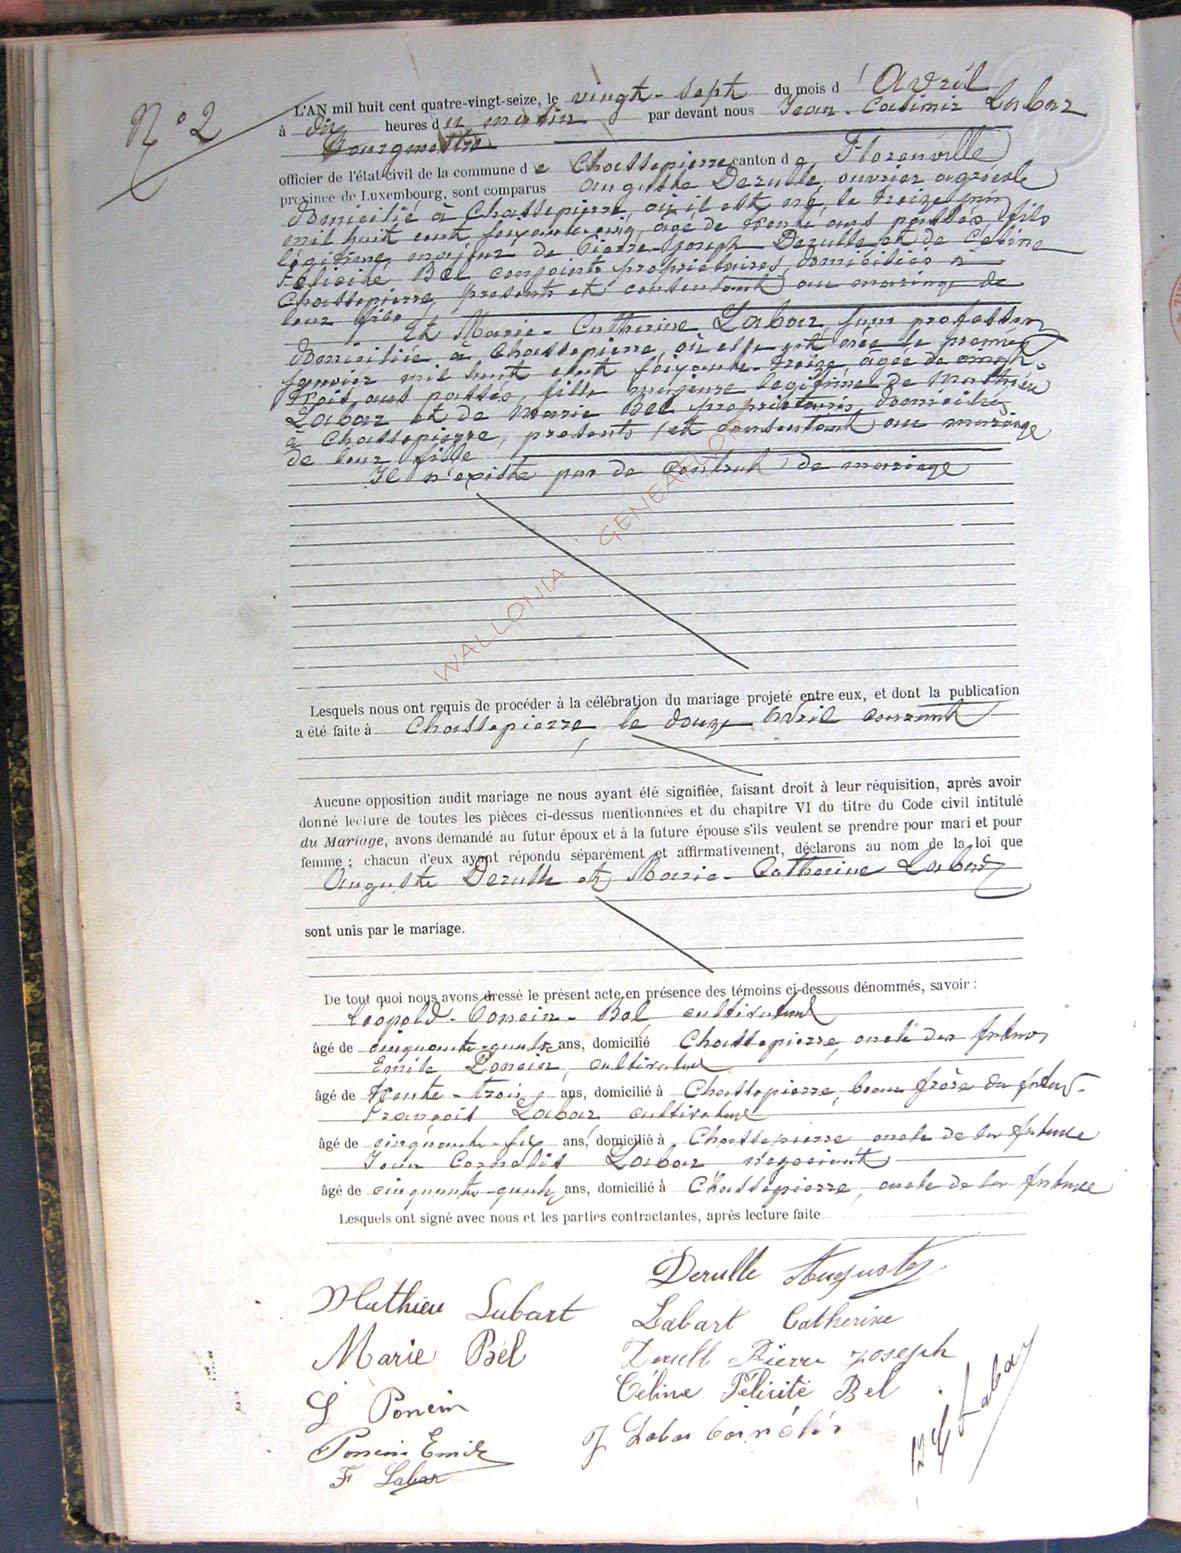 N° 2
L'AN mil huit cent quatre-vingt-seize, le vingt-sept du mois d' Avril
à dix heures du matin par devant nous Jean-Casimir Labar
Bourgmestre
officier de l'état-civil de la commune de Chassepierre canton de Florenville
province de Luxembourg, sont comparus Auguste Derulle, ouvrier agricole
domicilié à Chassepierre, où il est né, le treize
mil huit cent soixante-cinq, âgé de trente ans passés, fils
légitime, majeur de Pierre-Joseph Derulle et de Céline
Félicité Bel conjoints propriétaires, domiciliés à
Chassepierre, présents et consentant au mariage de
leur fils
Et Marie-Catherine Labar, sans profession
domiciliée à Chassepierre, où elle est née le premier
janvier mil huit cent soixante-treize, âgée de vingt-
trois ans passés, fille majeure légitime de Mathieu
Labar et de Marie Bel propriétaires, domiciliés
à Chassepierre, présents et consentant au mariage
de leur fille
Il n'existe pas de contrat de mariage
WALLONIA GENEALOGY
Lesquels nous ont requis de procéder à la célébration du mariage projeté entre eux, et dont la publication
a été faite à Chassepierre, le douze avril courant
Aucune opposition audit mariage ne nous ayant été signifiée, faisant droit à leur réquisition, après avoir
donné lecture de toutes les pièces ci-dessus mentionnées et du chapitre VI du titre du Code civil intitulé
du Mariage, avons demandé au futur époux et à la future épouse s'ils veulent se prendre pour mari et pour
femme ; chacun d'eux ayant répondu séparément et affirmativement, déclarons au nom de la loi que
Auguste Derulle et Marie-Catherine Labar
sont unis par le mariage.
De tout quoi nous avons dressé le présent acte en présence des témoins ci-dessous dénommés, savoir :
Léopold Poncin-Bel cultivateur
âgé de cinquante-quatre ans, domicilié Chassepierre, oncle des futurs
Emile Poncin, cultivateur
âgé de trente-trois ans, domicilié à Chassepierre, beau frère du futur
François Labar cultivateur
âgé de cinquante-six ans, domicilié à Chassepierre oncle de la future
Jean Cornélis Labar, négociant
âgé de cinquante-quatre ans, domicilié à Chassepierre, oncle de la future
Lesquels ont signé avec nous et les parties contractantes, après lecture faite
Derulle Auguste
Mathieu Labart Labart Catherine
Marie Bel Derulle Pierre joseph
L Poncin Céline Félicité Bel
Poncin Emile J Labar Cornélis
F Labar
Labar